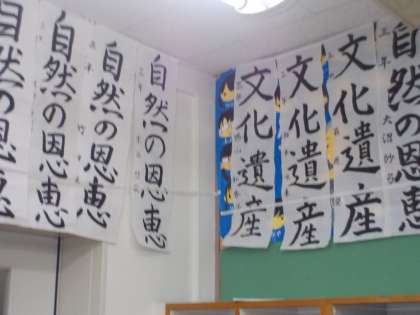 自然の恩恵
自然の恩恵
自然の恩恵
自然の恩恵
文化遺産
文化遺産
文化遺産
自然の恩恵
三年 大沼紗弓